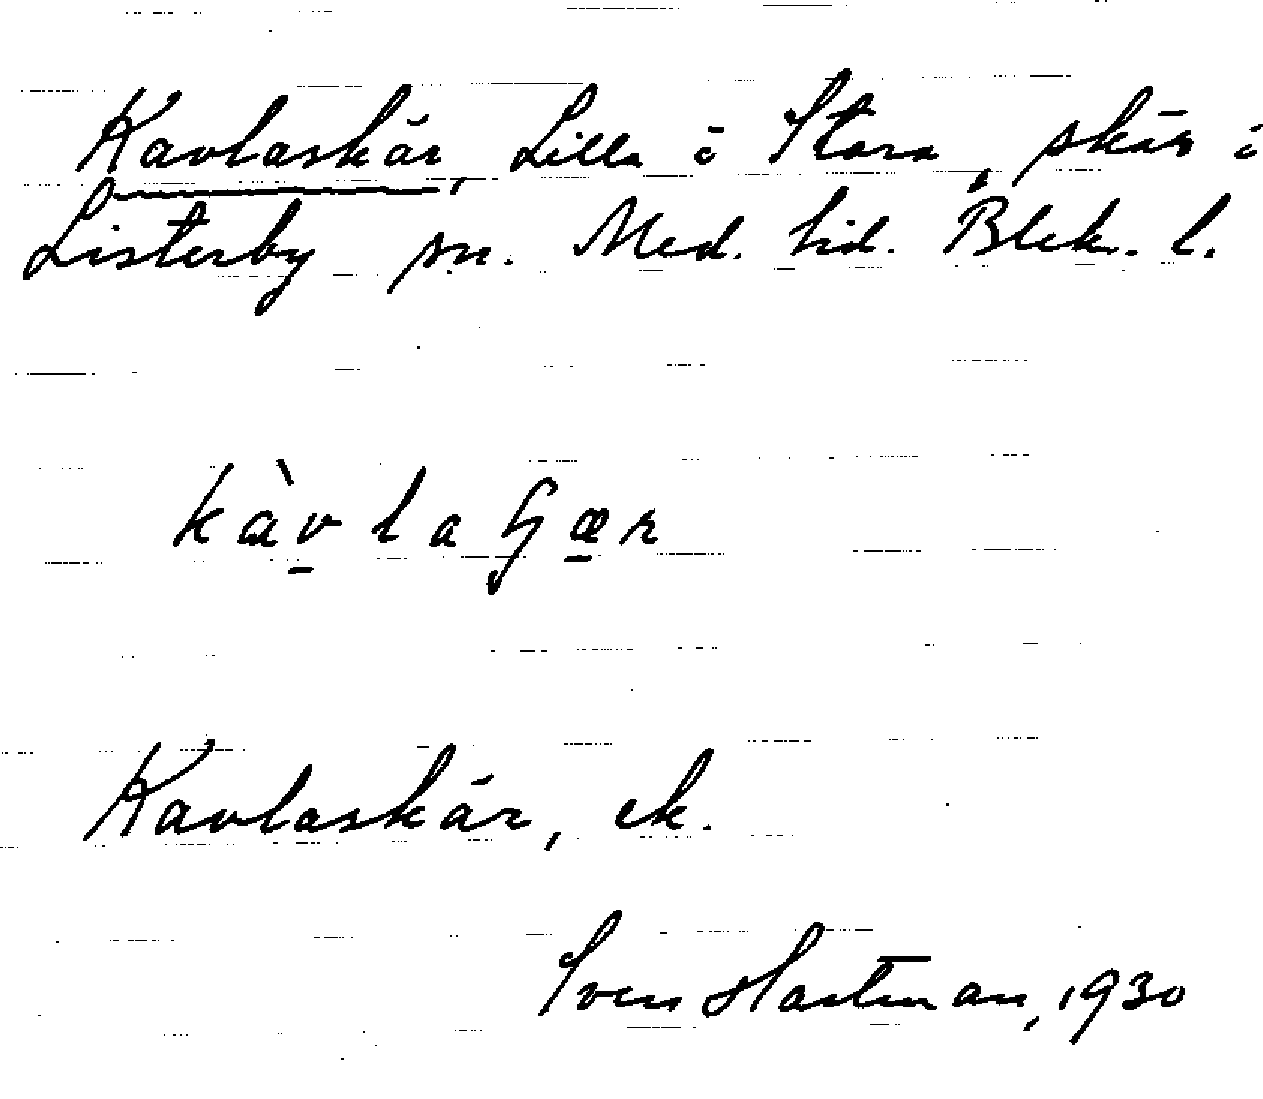 Kavlaskär, Lilla o Stora, skär i
Listerby sn. Med. hd. Blek. l.
Kavlaskär, ek.
Sven Hartman, 1930